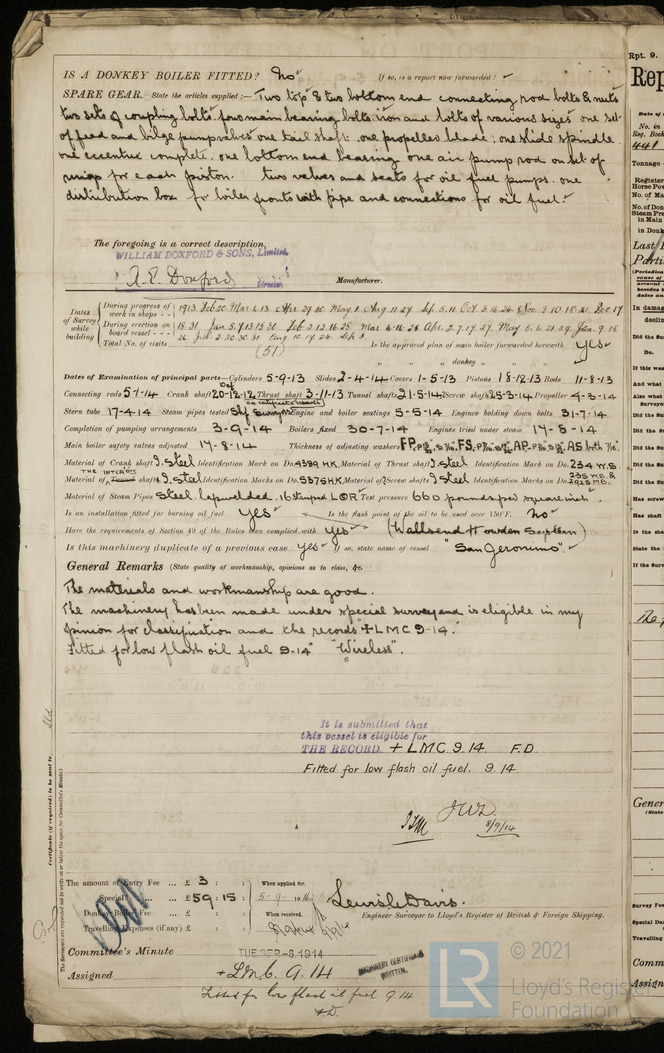 IS A DONKEY BOILER FITTED? No If so, is a report now forwarded?
SPARE GEAR. State the articles supplied:— Two top & two bottom end connecting rod bolts & nuts
two sets of coupling bolts, four main bearing bolts, iron and bolts of various sizes one set
of feed and bilge pump valves one tail shaft, one propeller blade, one slide spindle
one eccentric complete, one bottom end bearing one air pump rod one set of
rings for each piston. two valves and seats for oil fuel pumps, one
distribution box for boiler fronts with pipe and connections for oil fuel.
The foregoing is a correct description,
WILLIAM DOXFORD & SONS, Limited.
A. E. Doxford Director. Manufacturer.
Dates of Survey while building
During progress of work in shops - - 1913 Feb 20 Mar 6.13 Apr 29.30 May 1 Aug 11.27 Sep 5.11 Oct 3.16.24 Nov 3.10.18.21 Dec 17
During erection on board vessel - - - 18 31 Jan 5.7.13.15.30 Feb 2.12.16.25 Mar 4.16.25 Apr 2.7.17.27 May 5.6.21.29 Jun 9.15
26 Jul 2.20.30.31 Aug 10.17.24 Sep 3
Total No. of visits (51) Is the approved plan of main boiler forwarded herewith Yes
" " " donkey " "
Dates of Examination of principal parts—Cylinders 5-9-13 Slides 2-4-14 Covers 1-5-13 Pistons 18-12-13 Rods 11-8-13
Connecting rods 5-1-14 Crank shaft 20-12-12 Thrust shaft 3-11-13 Tunnel shafts 21-5-14 Screw shaft 25-3-14 Propeller 4-3-14
Stern tube 17-4-14 Steam pipes tested Engine and boiler seatings 5-5-14 Engines holding down bolts 31-7-14
Completion of pumping arrangements 3-9-14 Boilers fixed 30-7-14 Engines tried under steam 17-8-14
Main boiler safety valves adjusted 17-8-14 Thickness of adjusting washers
Material of Crank shaft I. Steel Identification Mark on Do. 4399 HK Material of Thrust shaft I. steel Identification Mark on Do. 234 W.S
THE INTERMS
Material of Tunnel shafts I. Steel Identification Marks on Do. 5375 HK Material of Screw shafts I Steel Identification Marks on Do. 235 W.S. & 2925 MB.
Material of Steam Pipes Steel lapwelded. 16 stamped LOR Test pressure 660 pounds per square inch
Is an installation fitted for burning oil fuel Yes Is the flash point of the oil to be used over 150°F. No
Have the requirements of Section 49 of the Rules been complied with Yes (Wallsend Howden System)
Is this machinery duplicate of a previous case Yes If so, state name of vessel "San Jeronimo".
General Remarks (State quality of workmanship, opinions as to class, &c.
The materials and workmanship are good.
The machinery has been made under special survey and is eligible in my
opinion for classification and the records "+LMC 9-14."
Fitted for low flash oil fuel 9-14" "Wireless".
It is submitted that
this vessel is eligible for
THE RECORD. + LMC 9.14. F.D.
Fitted for low flash oil fuel. 9.14.
8/9/14
Certificate (if required) to be sent to
The amount of Entry Fee ... £ 3 : : When applied for.
Special ... £ 59 : 15 :
Donkey Boiler Fee ... £ : : When received.
Travelling Expenses (if any) £ : :
Lewis Davis.
Engineer Surveyor to Lloyd's Register of British & Foreign Shipping.
Committee's Minute TUE. SEP-8.1914
Assigned + L.M.C. 9.14
Fitted for low flash oil fuel 9.14
F.D.
MACHINERY CERTIFICATE
WRITTEN.
© 2021
LR
Lloyd's Register
Foundation
Rpt. 9.